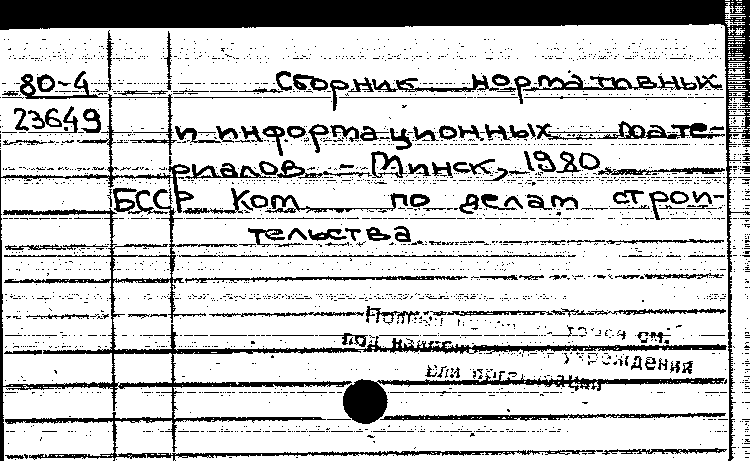 80-4 Сборник нормативных
23649 и информационных мате-
риалов - Минск, 1980
БССР Ком по делам строи-
тельства
см.
под учреждения
или организации